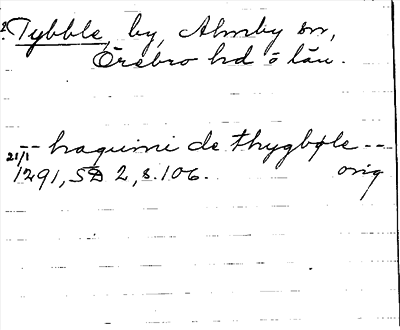 Tybble, by, Almby sn,
Örebro hd o län.
-- haquini de thygbøle --
21/1 1291, SD 2, s. 106. orig